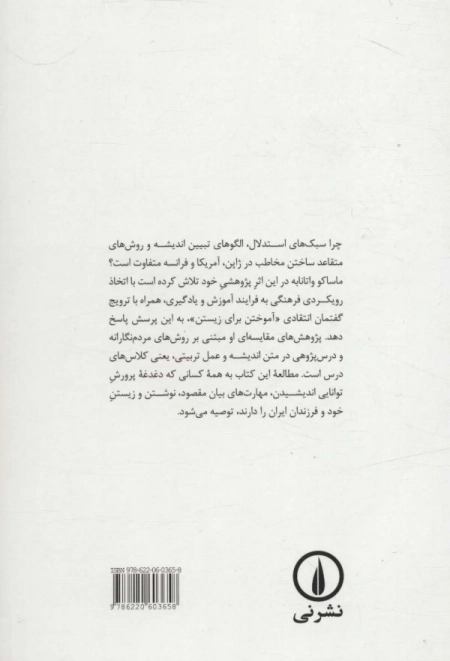 چرا سبک‌های استدلال، الگوهای تبیین اندیشه و روش‌های
متقاعد ساختن مخاطب در ژاپن، آمریکا و فرانسه متفاوت است؟
ماساکو واتانابه در این اثر پژوهشیِ خود تلاش کرده است با اتخاذ
رویکردی فرهنگی به فرایند آموزش و یادگیری، همراه با ترویج
گفتمان انتقادی «آموختن برای زیستن»، به این پرسش پاسخ
دهد. پژوهش‌های مقایسه‌ای او مبتنی بر روش‌های مردم‌نگارانه
و درس‌پژوهی در متن اندیشه و عمل تربیتی، یعنی کلاس‌های
درس است. مطالعهٔ این کتاب به همهٔ کسانی که دغدغهٔ پرورشِ
توانایی اندیشیدن، مهارت‌های بیان مقصود، نوشتن و زیستنِ
خود و فرزندان ایران را دارند، توصیه می‌شود.
ISBN 978-622-06-0365-8
9786220603658
نشرنی